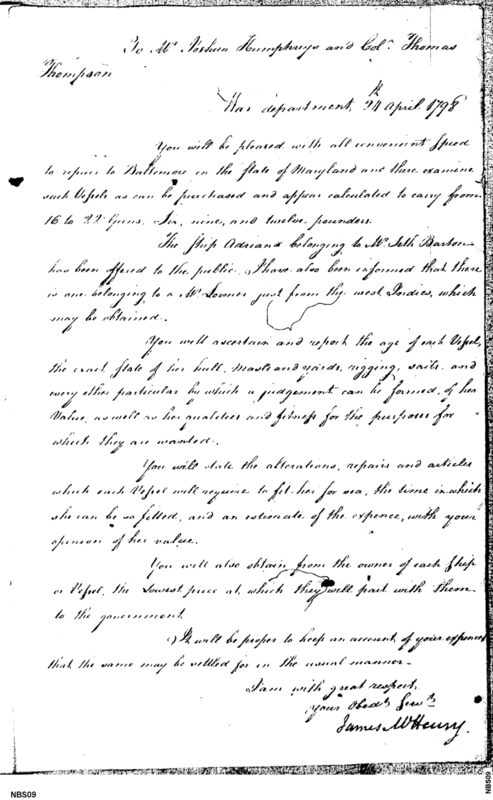 To Mr. Joshua Humphreys and Coln. Thomas
Thompson
War department, 24th April 1798
You will be pleased with all convenient speed
to repair to Baltimore in the State of Maryland and there examine
such Vessels as can be purchased and appear calculated to carry from
16 to 22 Guns. Six, nine, and twelve pounders.
The Ship Adriana belonging to Mr. Seth Barton
has been offered to the public. I have also been informed that there
is one belonging to a Mr. just from the west Indies, which
may be obtained.
You will ascertain and report the age of each Vessel,
the exact state of her hull, masts and yards, rigging, sails and
every other particular by which a judgement can be formed, of her
Value, as well as her qualities and fitness for the purposes for
which they are wanted.
You will state the alterations, repairs and articles
which each Vessel will require to fit her for sea, the time in which
she can be so fitted, and an estimate of the expence, with your
opinion of her value.
You will also obtain from the owner of each Ship
or Vessel, the Lowest price at, which they will part with them
to the government.
It will be proper to keep an account of your expences
that the same may be settled for in the usual manner.
I am with great respect,
your Obedt. Servt.
James McHenry.
NBS09
NBS09